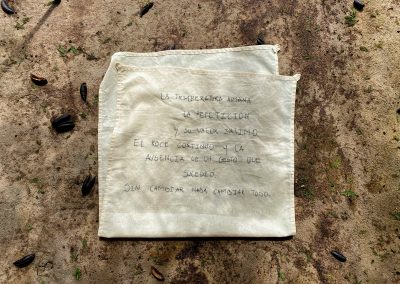 LA TEMPERATURA
LA REPETICIÓN
Y SU VALOR
EL ROCE CONTINUO Y LA
AUSENCIA DE UN GESTO QUE
SUCEDIÓ.
SIN CAMBIAR NADA CAMBIAR TODO.